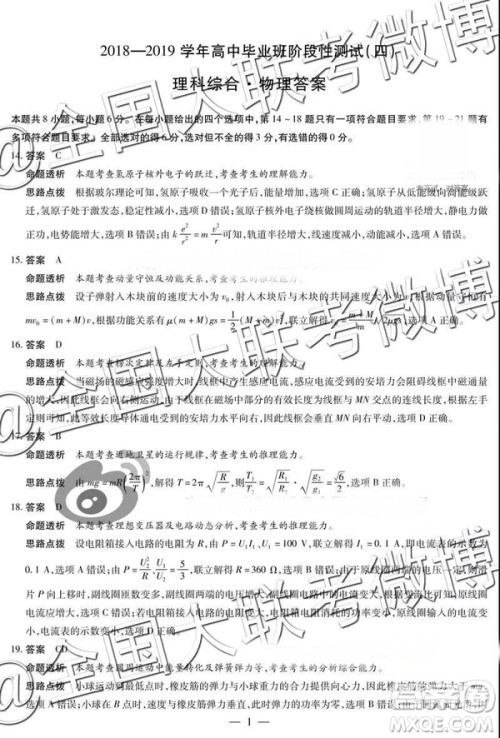 2018—2019 学年高中毕业班阶段性测试(四)
理科综合·物理答案
本题共 8 小题,每小题 6 分。在每小题给出的四个选项中,第 14~18 题只有一项符合题目要求,第 19~21 题有
多项符合题目要求。全部选对的得 6 分,选对但不全的得 3 分,有选错的得 0 分。
14. 答案 C
命题透析 本题考查氢原子核外电子的跃迁,考查考生的理解能力。
思路点拨 根据玻尔理论可知,氢原子吸收一个光子后,能量增大,选项 C 正确;氢原子从低能级向高能级跃
迁,氢原子处于激发态,稳定性减小,选项 D 错误;氢原子核外电子绕核做圆周运动的轨道半径增大,静电力做
正功,电势能增大,选项 B 错误;由 k e²/r² = m v²/r 可知,轨道半径增大,线速度减小,动能减小,选项 A 错误。
15. 答案 A
命题透析 本题考查动量守恒及功能关系,考查考生的推理能力。
思路点拨 设子弹射入木块前的速度大小为 v₀,射入木块后与木块的共同速度大小为 v,
mv₀ = (m + M)v,根据功能关系有 μ(m + M)gs = 1/2 (M + m)v²,
16. 答案 D
命题透析 本题考查楞次定律及左手定则,考查考生的理解能力。
思路点拨 当磁场的磁感应强度增大时,线框中产生感应电流,感应电流受到的安培力将阻碍线框中磁通量
的增大,因此线框会向右侧运动,选项 B 错误;由于线框在磁场中部分的有效长度为 MN 的长度,根据左手
定则可知,此等效长度导体受到的安培力水平向右,因此线框受到的安培力垂直 MN 向右,选项 D 正确。
17. 答案 B
命题透析 本题考查近地卫星的运行规律,考查考生的推理能力。
思路点拨 由 mg = mR(2π/T)²,解得 T = 2π√(R/g),T₁/T₂ = √(R₁/R₂ · g₂/g₁) = √6/2,选项 B 正确。
18. 答案 D
命题透析 本题考查理想变压器及电路动态分析,考查考生的推理能力。
思路点拨 设电阻箱接入电路的电阻为 R,由 P = U₁I₁,U₁ = 100 V,联立解得 I₁ = 0.1 A,即电流表的示数为
0.1 A,选项 A 错误;由 P = U₂²/R,U₁/U₂ = 5/3,联立解得 R = 360 Ω,选项 B 错误;原线圈两端的电压一定,则滑
片 P 向上移时,副线圈匝数变多,副线圈两端的电压变大,副线圈中电流变大,
电流增大,选项 C 错误;若电阻箱接入电路的电阻变大,副线圈电路中的电流变小,原线圈输入的电流变小,
电流表的示数变小,选项 D 正确。
19. 答案 CD
命题透析 本题考查圆周运动及弹簧弹力等,考查考生的分析综合能力。
思路点拨 小球运动到最低点时,橡皮筋的弹力与小球重力的合力提供向心力,因此橡皮筋的弹力大于 mg,
选项 A 错误;小球在 B 点时,速度方向与橡皮筋垂直,
— 1 —
@全国大联考微博